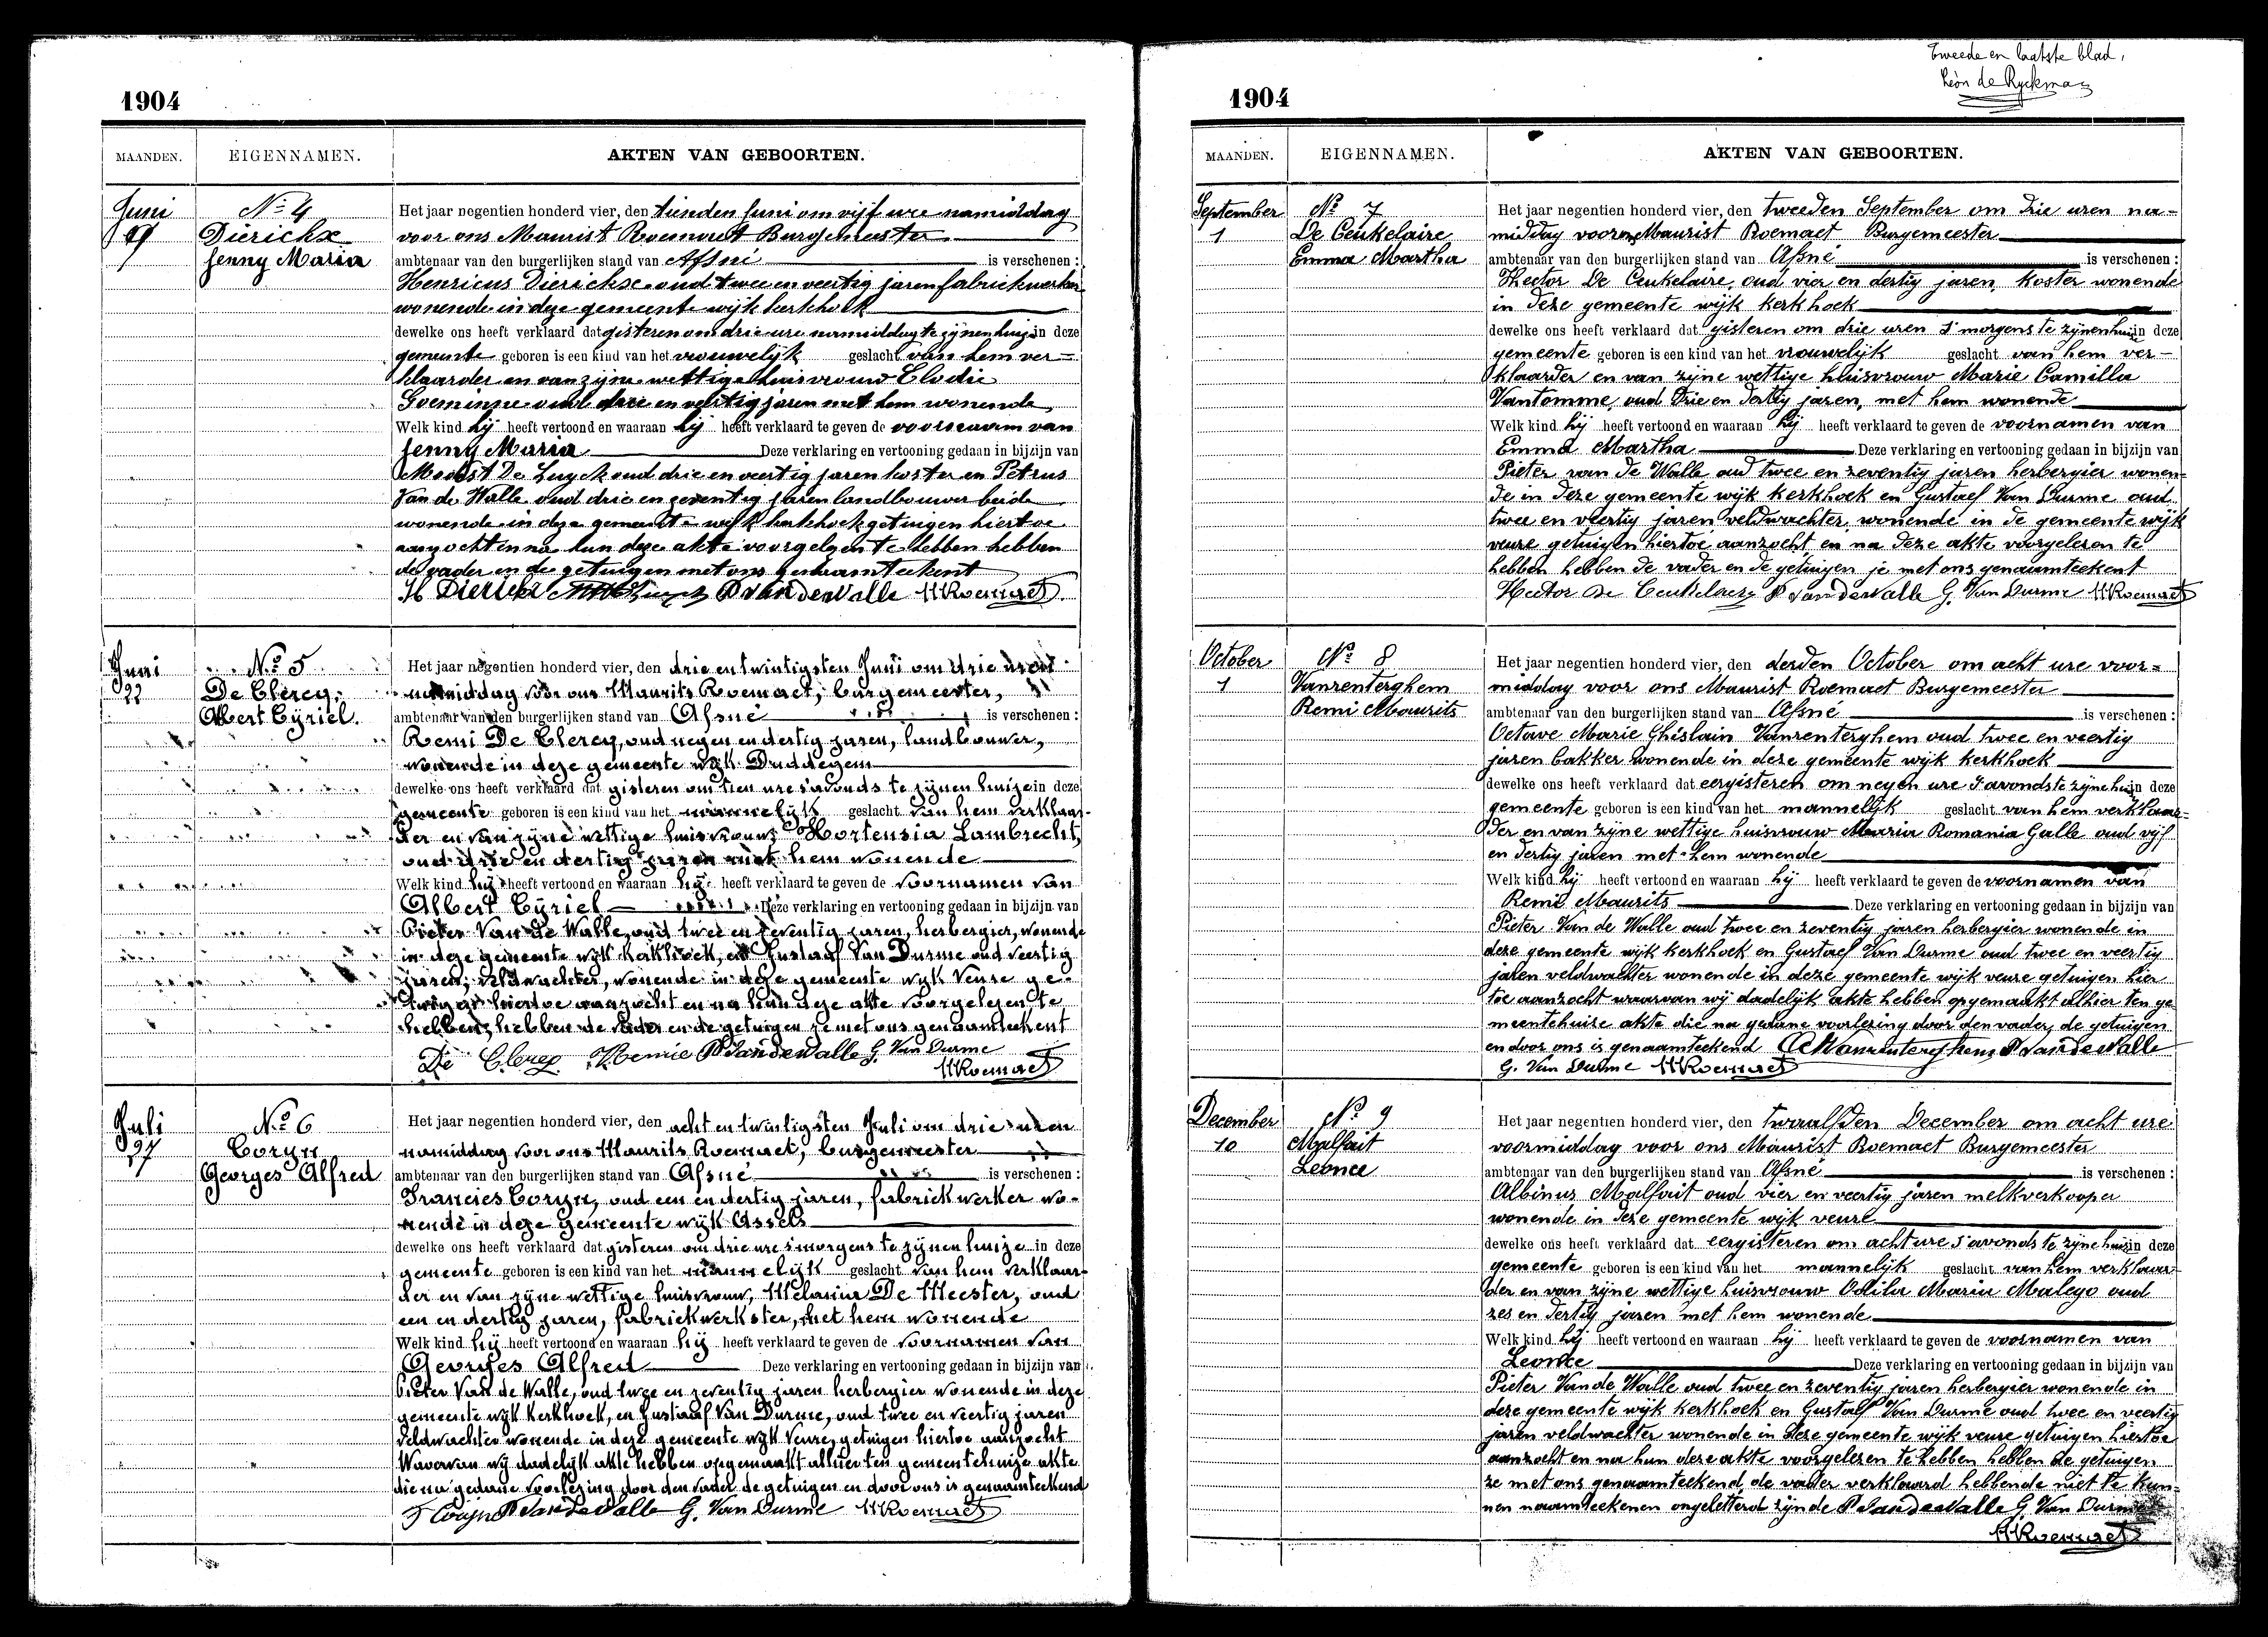 1904
MAANDEN. EIGENNAMEN. AKTEN VAN GEBOORTEN.
Juni
9
N° 4
Dierickx
Jenny Maria
Het jaar negentien honderd vier, den tienden Juni om vijf ure namiddag
voor ons Maurist Roemaet Burgemeester
ambtenaar van den burgerlijken stand van Afsné is verschenen :
Henricus Dierickx oud twee en veertig jaren fabriekwerker
wonende in deze gemeente wijk kerkhoek
dewelke ons heeft verklaard dat gisteren om drie ure namiddag te zijnen huize in deze
gemeente geboren is een kind van het vrouwelijk geslacht van hem ver=
klaarder en van zijne wettige huisvrouw Elodie
Goeminne oud drie en veertig jaren met hem wonende
Welk kind hij heeft vertoond en waaraan hij heeft verklaard te geven de voornaam van
Jenny Maria Deze verklaring en vertooning gedaan in bijzijn van
Modest De Luyck oud drie en veertig jaren koster en Petrus
Van de Walle oud drie en zeventig jaren landbouwer beide
wonende in deze gemeente wijk kerkhoek getuigen hiertoe
aanzocht en na hun deze akte voorgelezen te hebben hebben
de vader en de getuigen met ons genaamteekent
H Dierickx P VandeWalle MRoemaet
Juni
22
N° 5
De Clercq
Albert Cyriel.
Het jaar negentien honderd vier, den drie en twintigsten Juni om drie uren
namiddag voor ons Maurits Roemaet, burgemeester,
ambtenaar van den burgerlijken stand van Afsné is verschenen :
Remi De Clercq, oud negen en dertig jaren, landbouwer,
wonende in deze gemeente wijk Duddegem
dewelke ons heeft verklaard dat gisteren om tien ure s'avonds te zijnen huize in deze
gemeente geboren is een kind van het mannelijk geslacht van hem verklaar-
der en van zijne wettige huisvrouw Hortensia Lambrecht,
oud drie en dertig jaren met hem wonende
Welk kind hij heeft vertoond en waaraan hij heeft verklaard te geven de voornamen van
Albert Cyriel Deze verklaring en vertooning gedaan in bijzijn van
Pieter Van de Walle, oud twee en zeventig jaren, herbergier, wonende
in deze gemeente wijk kerkhoek, en Gustaaf Van Durme oud veertig
jaren, veldwachter, wonende in deze gemeente wijk veure ge-
tuigen hiertoe aanzocht en na hun deze akte voorgelezen te
hebben, hebben de vader en de getuigen ze met ons genaamteekent
De Clercq Remie P VandeWalle G. Van Durme
MRoemaet
Juli
27
N° 6
Coryn
Georges Alfred
Het jaar negentien honderd vier, den acht en twintigsten Juli om drie uren
namiddag voor ons Maurits Roemaet, burgemeester
ambtenaar van den burgerlijken stand van Afsné is verschenen :
Francies Coryn, oud een en dertig jaren, fabriekwerker wo-
nende in deze gemeente wijk Assels
dewelke ons heeft verklaard dat gisteren om drie ure s'morgens te zijnen huize in deze
gemeente geboren is een kind van het mannelijk geslacht van hem verklaar-
der en van zijne wettige huisvrouw, Melania De Meester, oud
een en dertig jaren, fabriekwerkster, met hem wonende
Welk kind hij heeft vertoond en waaraan hij heeft verklaard te geven de voornamen van
Georges Alfred Deze verklaring en vertooning gedaan in bijzijn van
Pieter Van de Walle, oud twee en zeventig jaren herbergier wonende in deze
gemeente wijk kerkhoek, en Gustaaf Van Durme, oud twee en veertig jaren
veldwachter wonende in deze gemeente wijk veure, getuigen hiertoe aanzocht
Waarvan wij dadelijk akte hebben opgemaakt alhier ten gemeentehuize akte
die na gedane voorlezing door den vader de getuigen en door ons is genaamteekend
F Coryn P VandeWalle G. Van Durme MRoemaet
Tweede en laatste blad,
Léon de Ryckman
1904
MAANDEN. EIGENNAMEN. AKTEN VAN GEBOORTEN.
September
1
N° 7
De Ceukelaire
Emma Martha
Het jaar negentien honderd vier, den tweeden September om drie uren na=
middag voor ons Maurist Roemaet Burgemeester
ambtenaar van den burgerlijken stand van Afsné is verschenen :
Hector De Ceukelaire, oud vier en dertig jaren, koster wonende
in deze gemeente wijk kerkhoek
dewelke ons heeft verklaard dat gisteren om drie uren s'morgens te zijnen huize in deze
gemeente geboren is een kind van het vrouwelijk geslacht van hem ver-
klaarder en van zijne wettige huisvrouw Marie Camilla
Vantomme, oud drie en dertig jaren, met hem wonende
Welk kind hij heeft vertoond en waaraan hij heeft verklaard te geven de voornamen van
Emma Martha Deze verklaring en vertooning gedaan in bijzijn van
Pieter van de Walle oud twee en zeventig jaren herbergier wonen=
de in deze gemeente wijk kerkhoek en Gustaef Van Durme oud
twee en veertig jaren veldwachter wonende in de gemeente wijk
veure getuigen hiertoe aanzocht, en na deze akte voorgelezen te
hebben hebben de vader en de getuigen ze met ons genaamteekent
Hector De Ceukelaire P VandeWalle G. Van Durme MRoemaet
October
1
N° 8
Vanrenterghem
Remi Maurits
Het jaar negentien honderd vier, den derden October om acht ure voor=
middag voor ons Maurist Roemaet Burgemeester
ambtenaar van den burgerlijken stand van Afsné is verschenen :
Octave Marie Ghislain Vanrenterghem oud twee en veertig
jaren bakker wonende in deze gemeente wijk kerkhoek
dewelke ons heeft verklaard dat eergisteren om negen ure s'avonds te zijne huize in deze
gemeente geboren is een kind van het mannelijk geslacht van hem verklaar=
der en van zijne wettige huisvrouw Maria Romania Galle oud vijf
en dertig jaren met hem wonende
Welk kind hij heeft vertoond en waaraan hij heeft verklaard te geven de voornamen van
Remi Maurits Deze verklaring en vertooning gedaan in bijzijn van
Pieter Van de Walle oud twee en zeventig jaren herbergier wonende in
deze gemeente wijk kerkhoek en Gustaef Van Durme oud twee en veertig
jaren veldwachter wonende in deze gemeente wijk veure getuigen hier
toe aanzocht waarvan wij dadelijk akte hebben opgemaakt alhier ten ge
meentehuize akte die na gedane voorlezing door den vader, de getuigen
en door ons is genaamteekend Vanrenterghem P VandeWalle
G. Van Durme MRoemaet
December
10
N° 9
Malfait
Leonce
Het jaar negentien honderd vier, den twaalfden December om acht ure
voormiddag voor ons Maurist Roemaet Burgemeester
ambtenaar van den burgerlijken stand van Afsné is verschenen :
Albinus Malfait oud vier en veertig jaren melkverkooper
wonende in deze gemeente wijk veure
dewelke ons heeft verklaard dat eergisteren om acht ure s'avonds te zijne huize in deze
gemeente geboren is een kind van het mannelijk geslacht van hem verklaar-
der en van zijne wettige huisvrouw Odila Maria Malego oud
zes en dertig jaren met hem wonende
Welk kind hij heeft vertoond en waaraan hij heeft verklaard te geven de voornamen van
Leonce Deze verklaring en vertooning gedaan in bijzijn van
Pieter Van de Walle oud twee en zeventig jaren herbergier wonende in
deze gemeente wijk kerkhoek en Gustaef Van Durme oud twee en veertig
jaren veldwachter wonende in deze gemeente wijk veure getuigen hiertoe
aanzocht en na hun deze akte voorgelezen te hebben hebben de getuigen
ze met ons genaamteekend, de vader verklaard hebbende niet te kun-
nen naamteekenen ongeletterd zijnde P VandeWalle G. Van Durme
MRoemaet